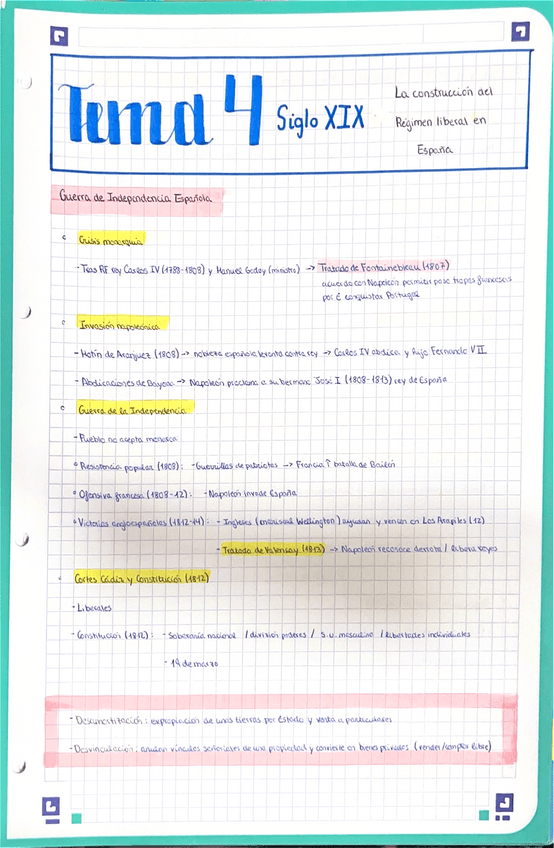 Tema 4 Siglo XIX
La construcción del
Régimen liberal en
España
Guerra de Independencia Española
Crisis monarquía
- Tras RF rey Carlos IV (1788-1808) y Manuel Godoy (ministro) → Tratado de Fontainebleau (1807)
acuerdo con Napoleón permitir paso tropas francesas
por E conquistar Portugal
Invasión napoleónica
- Motín de Aranjuez (1808) → nobleza española levanta contra rey → Carlos IV abdica y hijo Fernando VII
- Abdicaciones de Bayona → Napoleón proclama a su hermano José I (1808-1813) rey de España
Guerra de la Independencia
- Pueblo no acepta monarca
Resistencia popular (1808): - Guerrillas de patriotas → Francia ↑ batalla de Bailén
Ofensiva francesa (1808-12): - Napoleón invade España
Victorias angloespañolas (1812-14): - Ingleses ( Wellington) ayudan y vencen en Los Arapiles (12)
- Tratado de Valençay (1813) → Napoleón reconoce derrota / libera reyes
Cortes Cádiz y Constitución (1812)
- Liberales
- Constitución (1812): - Soberanía nacional / división poderes / S.U. masculino / libertades individuales
- 19 de marzo
- Desamortización: expropiación de unas tierras por Estado y venta a particulares
- Desvinculación: anulan vínculos señoriales de una propiedad y convierte en bienes privados (vender/comprar libre)